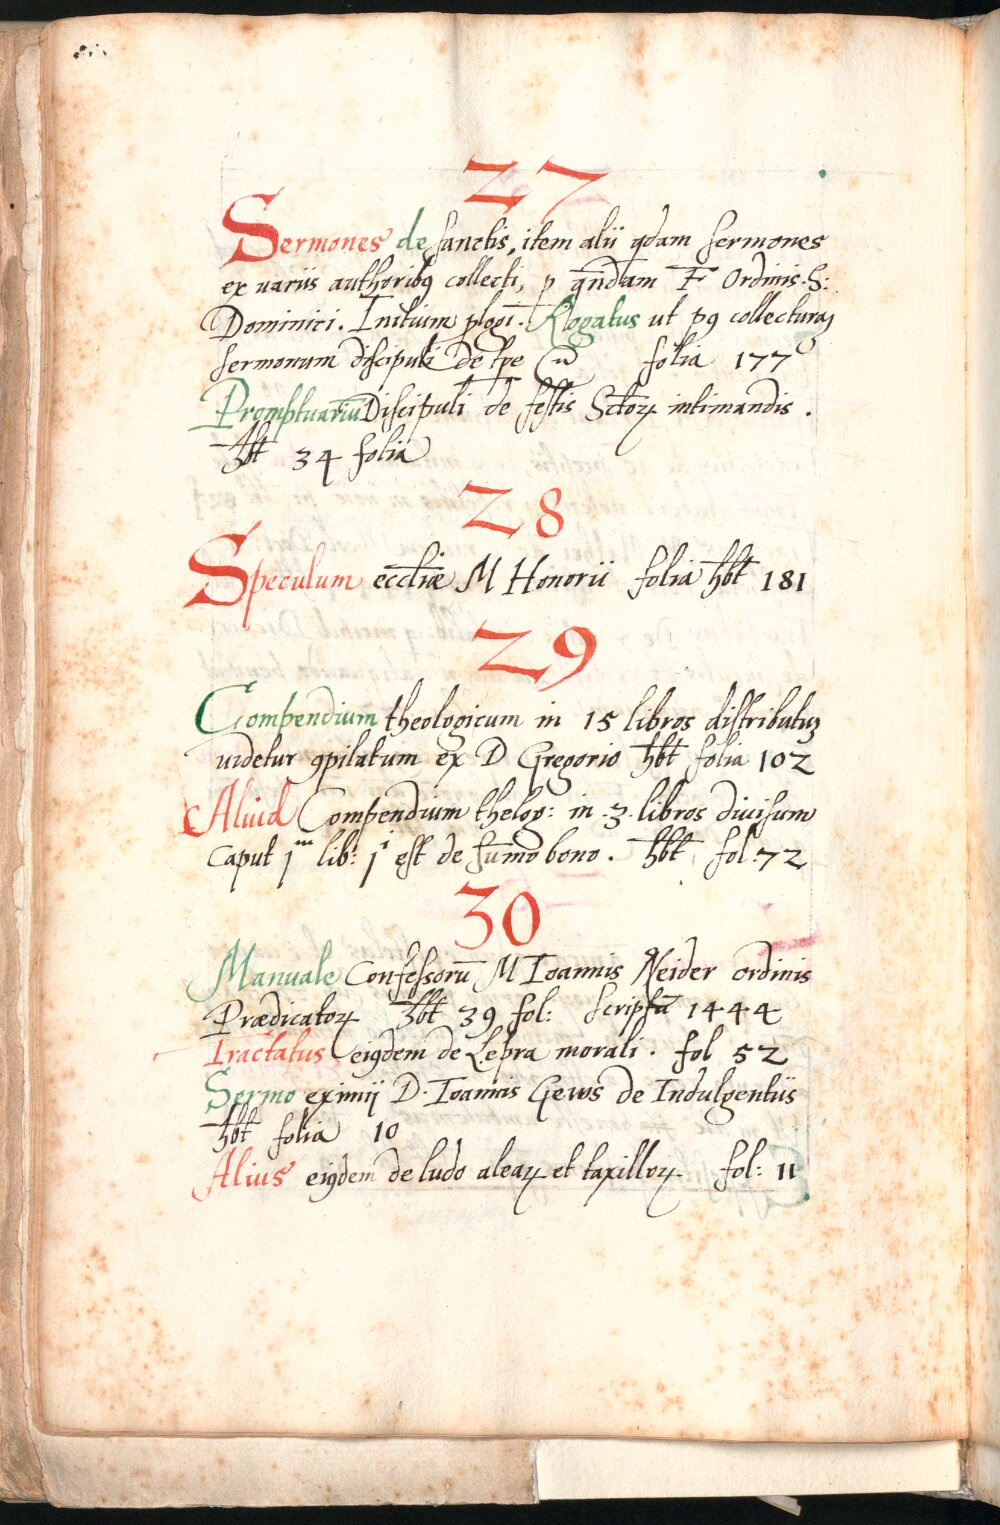 27
Sermones de sanctis, item alii qdam sermones
ex variis authoribꝯ collecti, p qndam F Ordinis. S:
Dominici. Initium plogi. Rogatus ut pꝯ collecturaȝ
sermonum discipuli de tpe folia 177
Promptuariū Discipuli de festis Sctoꝝ intimandis.
hbt 34 folia
28
Speculum eccliæ M Honorii folia hbt 181
29
Compendium theologicum in 15 libros distributuȝ
uidetur ꝯpilatum ex D Gregorio hbt folia 102
Aliud Compendium theloġ: in .3. libros diuisum
Caput 1ᵐ lib: 1ⁱ est de sūmo bono. hbt fol: 72
30
Manuale Confessorū M Ioannis Neider ordinis
Prædicatoꝝ hbt 39 fol: scriptū 1444
Tractatus eiꝯdem de Lepra morali. fol 52
Sermo eximij D. Ioannis Gews de Indulgentiis
hbt folia 10
Alius eiꝯdem de ludo aleaꝝ et taxilloꝝ fol: 11